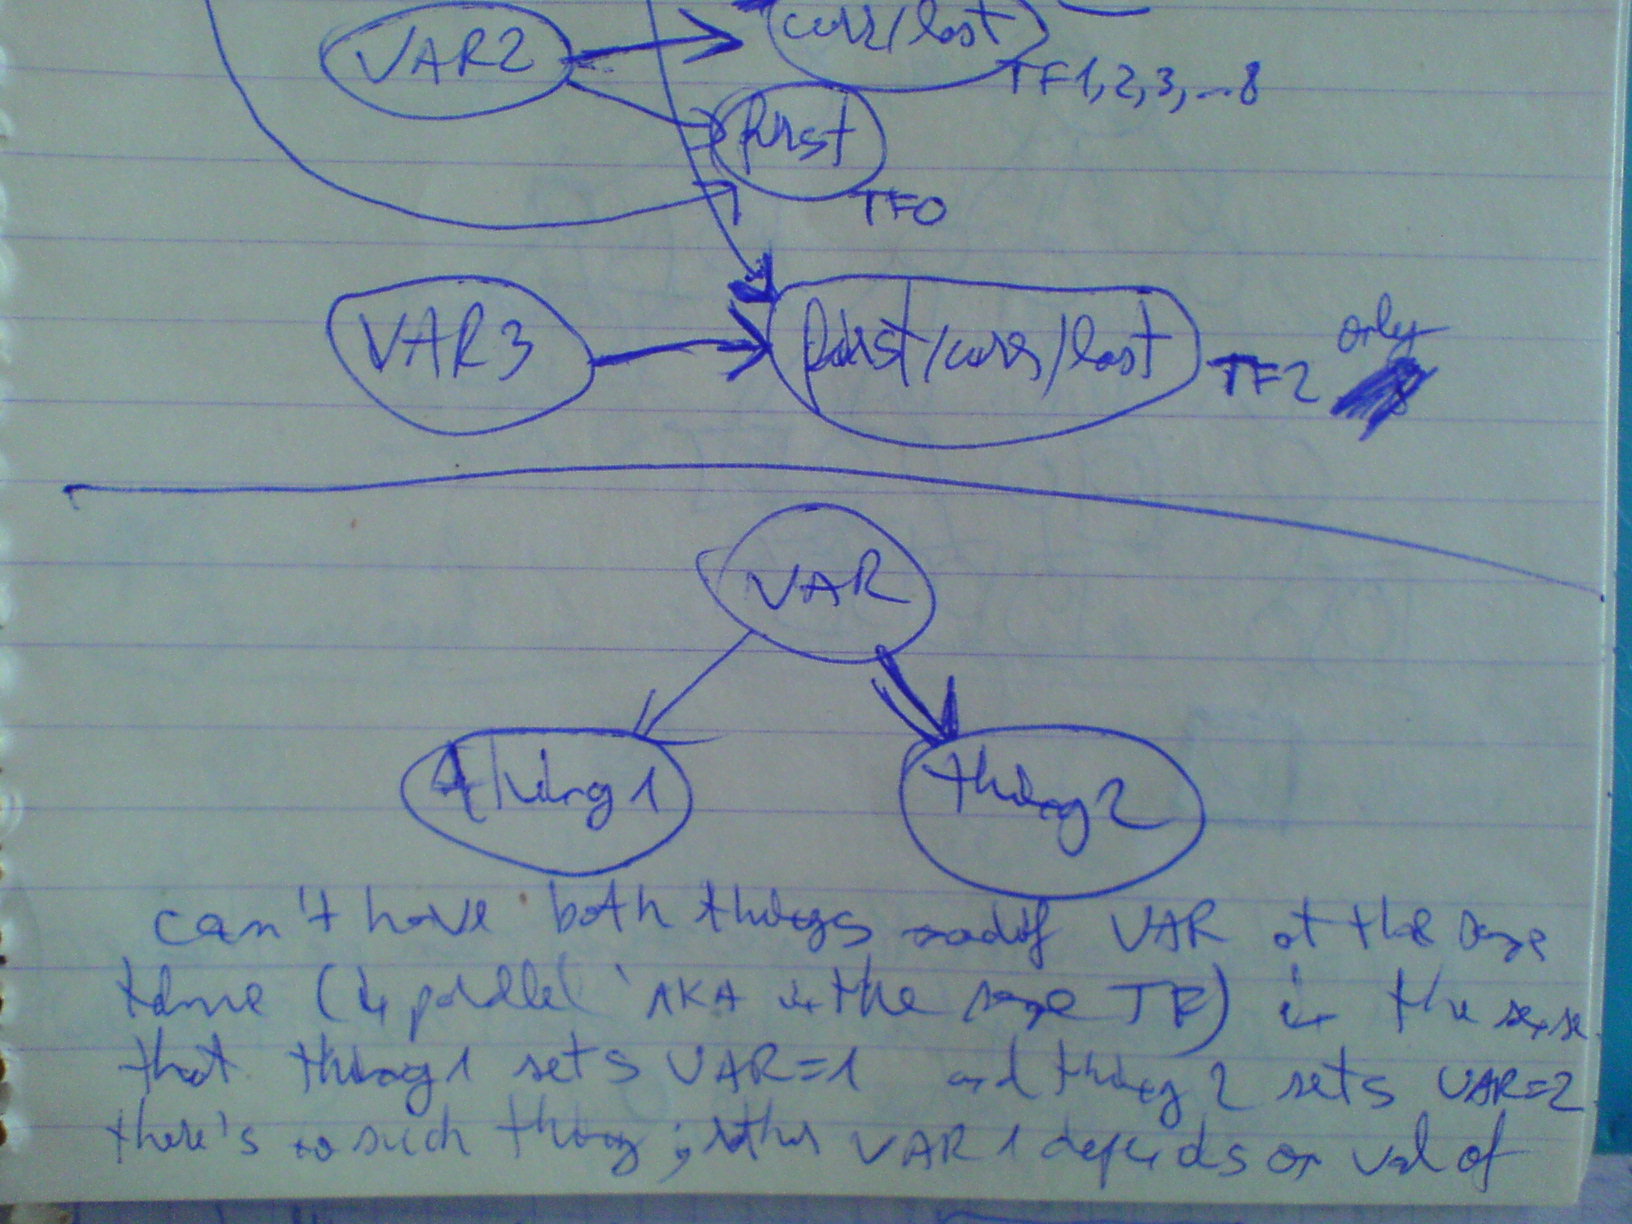 VAR2
curr/last
TF1,2,3,...8
first
TF0
VAR3
first/curr/last
TF2 only
VAR
thing1
thing2
can't have both things modif VAR at the same
time (in parallel AKA in the same TF) in the sense
that thing1 sets VAR=1 and thing2 sets VAR=2
there's no such thing; rather VAR1 depends on val of